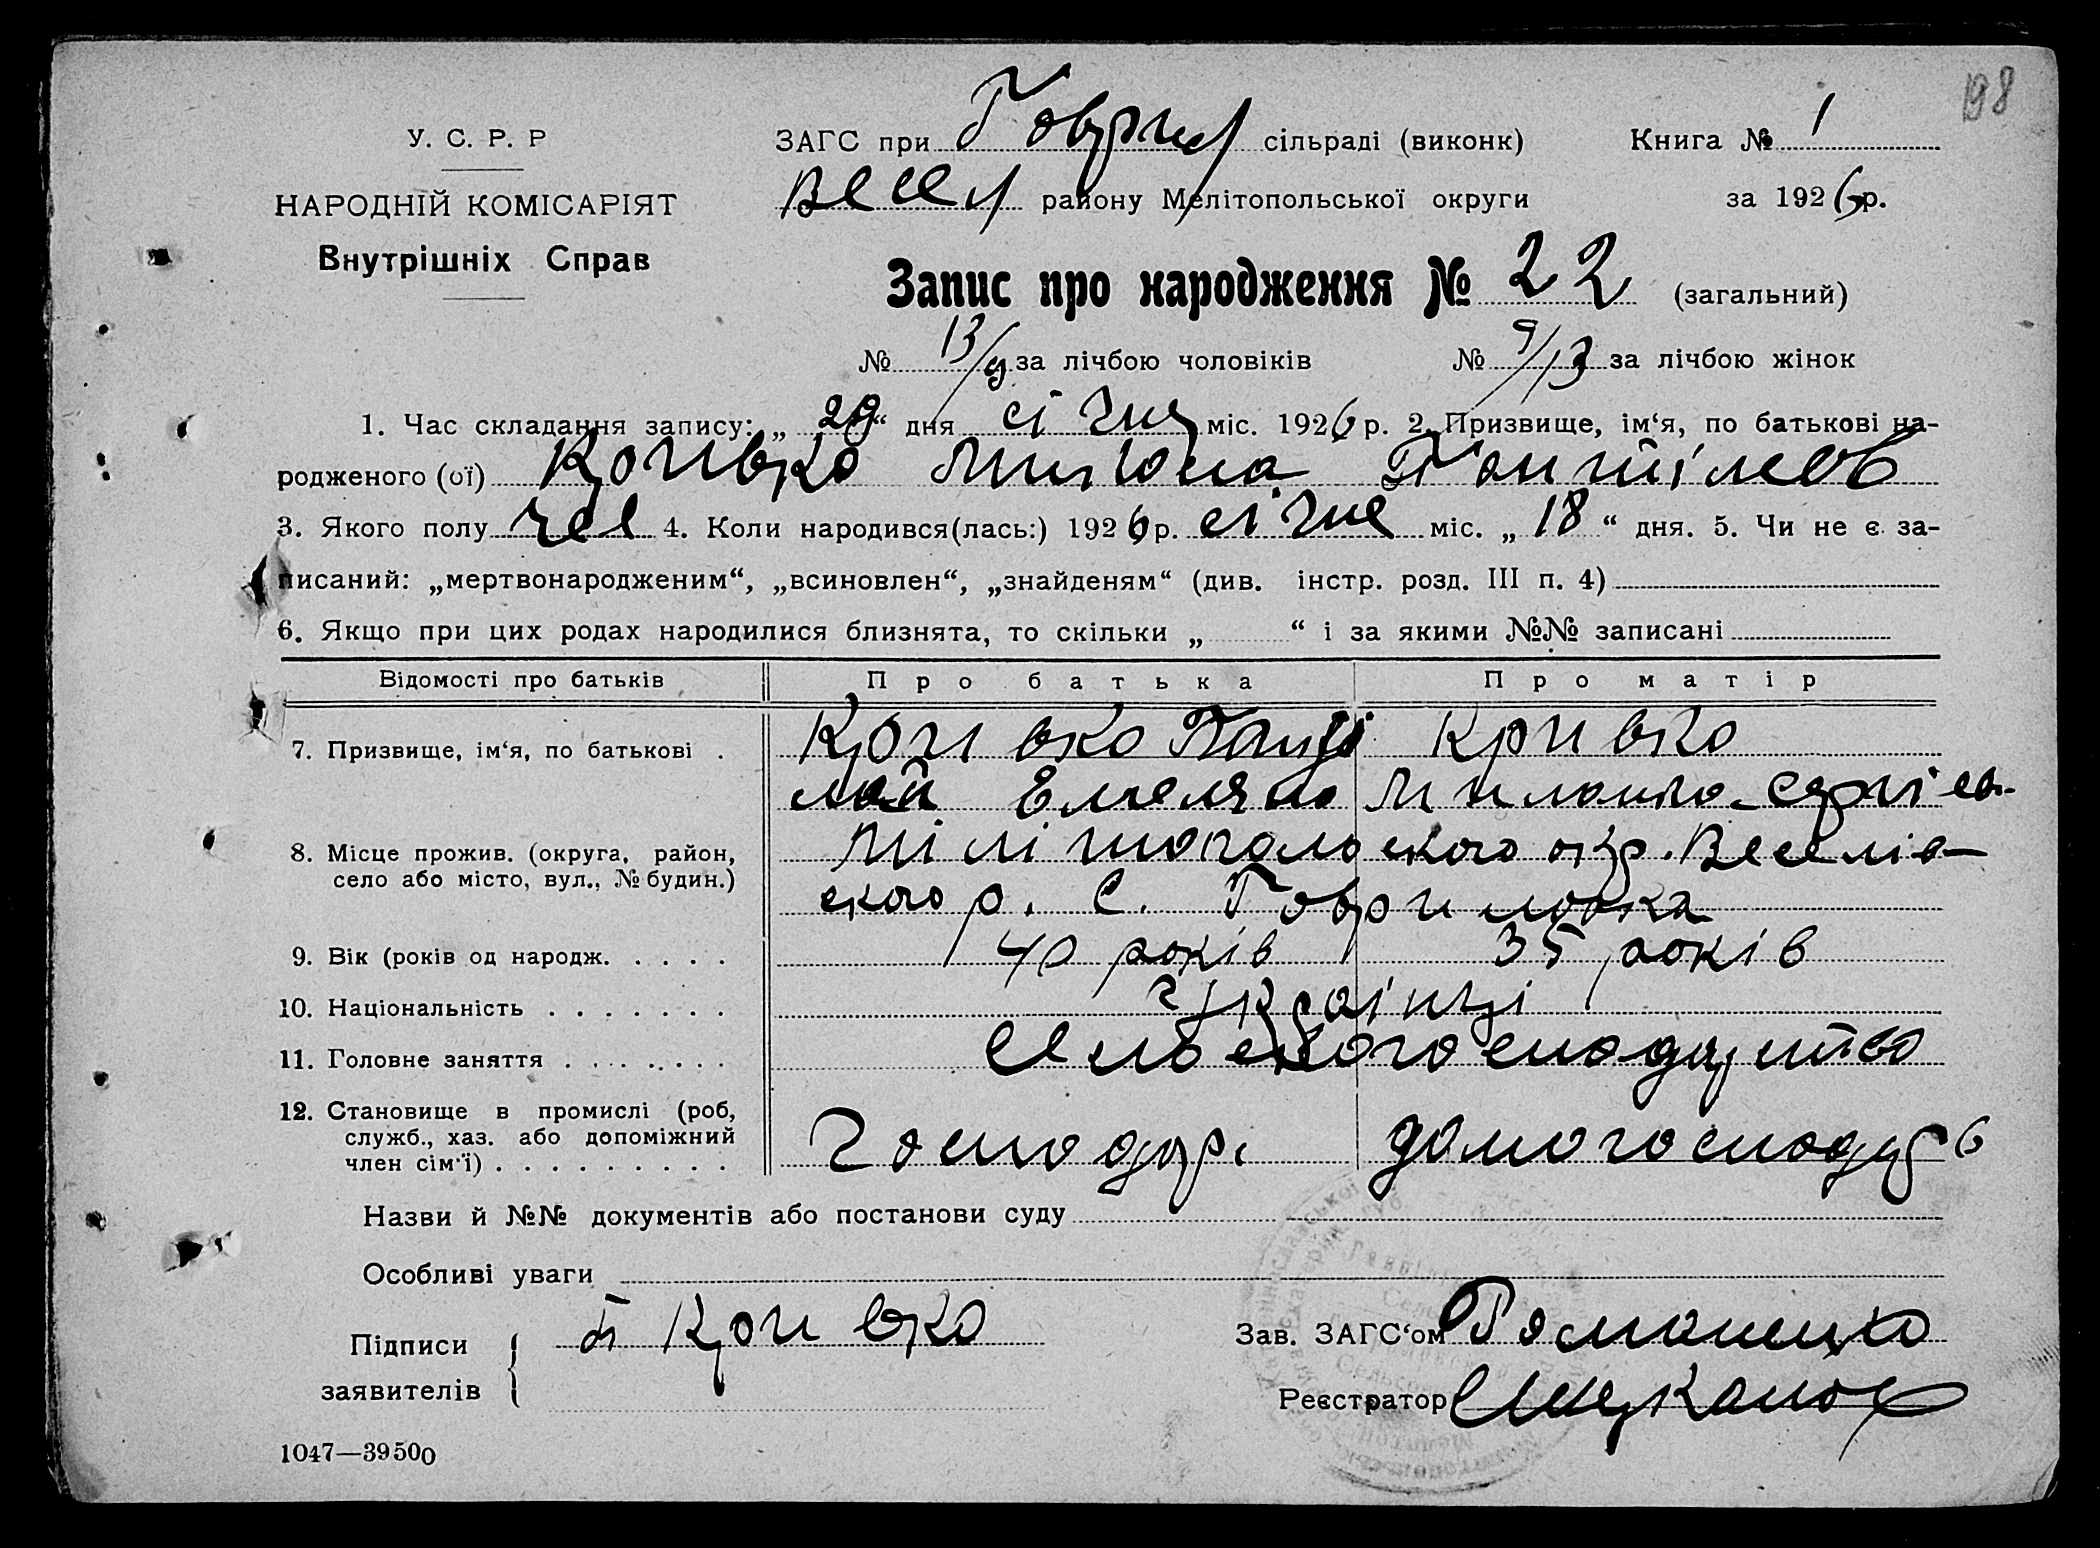 198
У. С. Р. Р
НАРОДНІЙ КОМІСАРІЯТ
Внутрішніх Справ
ЗАГС при Гаврил сільраді (виконк) Книга № 1
Весел району Мелітопольської округи за 1926 р.
Запис про народження № 22 (загальний)
№ 13/9 за лічбою чоловіків № 9/13 за лічбою жінок
1. Час складання запису: „ 29 “ дня січня міс. 1926 р. 2. Призвище, ім‘я, по батькові на-
родженого (ої) Кривко
3. Якого полу чол 4. Коли народився(лась:) 1926 р. січня міс. „ 18 “ дня. 5. Чи не є за-
писаний: „мертвонародженим“, „всиновлен“, „знайденям“ (див. інстр. розд. III п. 4)
6. Якщо при цих родах народилися близнята, то скільки „ “ і за якими №№ записані
Відомості про батьків Про батька Про матір
7. Призвище, ім‘я, по батькові . Кривко Панті Кривко
Емеляно
8. Місце прожив. (округа, район, село або місто, вул., № будин.) Мілітопольского окр. Веселів-
ского р. С. Гавриловка
9. Вік (років од народж. . . . . 40 років 35 років
10. Національність . . . . . . . Українці
11. Головне заняття . . . . . . . Сельское господарство
12. Становище в промислі (роб, служб., хаз. або допоміжний член сім‘ї) . . . . . . . . . Господар. домогосподар
Назви й №№ документів або постанови суду
Особливі уваги
Підписи заявителів П Кривко
Зав. ЗАГС‘ом Романенко
Реєстратор
1047—39500